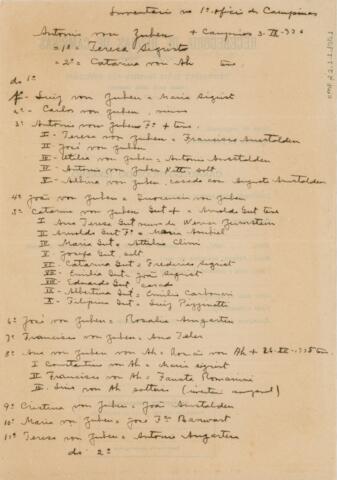 Inventario no 1º oficio de Campinas
Antonio von Zuben + Campinas 3-IX-1936
= 1º = Teresa Sigrist
= 2º = Catarina von Ah
do 1º
1º - Luiz von Zuben = Maria Sigrist
2º - Carlos von Zuben,
3º - Antonio von Zuben Fº +
I - Teresa von Zuben = Francisco Amstalden
II José von Zuben
III - Otilia von Zuben = Antonio Amstalden
IV - Antonio von Zuben Netto, solt.
V - Albina von Zuben, casada com Augusto Amstalden
4º João von Zuben = Inocencia von Zuben
5º Catarina von Zuben Gut + = Arnoldo Gut
I Ana Teresa Gut Werner
II Arnoldo Gut Fº = Maria
III Maria Gut = Attilio
IV Josefa Gut solt
V - Catarina Gut = Frederico Sigrist
VI - Emilia Gut = José Sigrist
VII - Eduardo Gut, casado
Albertina Gut = Emilio
X - Filipina Gut = Luiz
6º José von Zuben = Rosalia Amgarten
7º Francisco von Zuben = Ana
8º Ana von Zuben von Ah = von Ah +
I Constantino von Ah = Maria Sigrist
II Francisco von Ah = Fausta
III - von Ah solteira
9º - Cristina von Zuben = João Amstalden
10º - Maria von Zuben = José Fco Bannwart
11º - Teresa von Zuben = Antonio Amgarten
do 2º